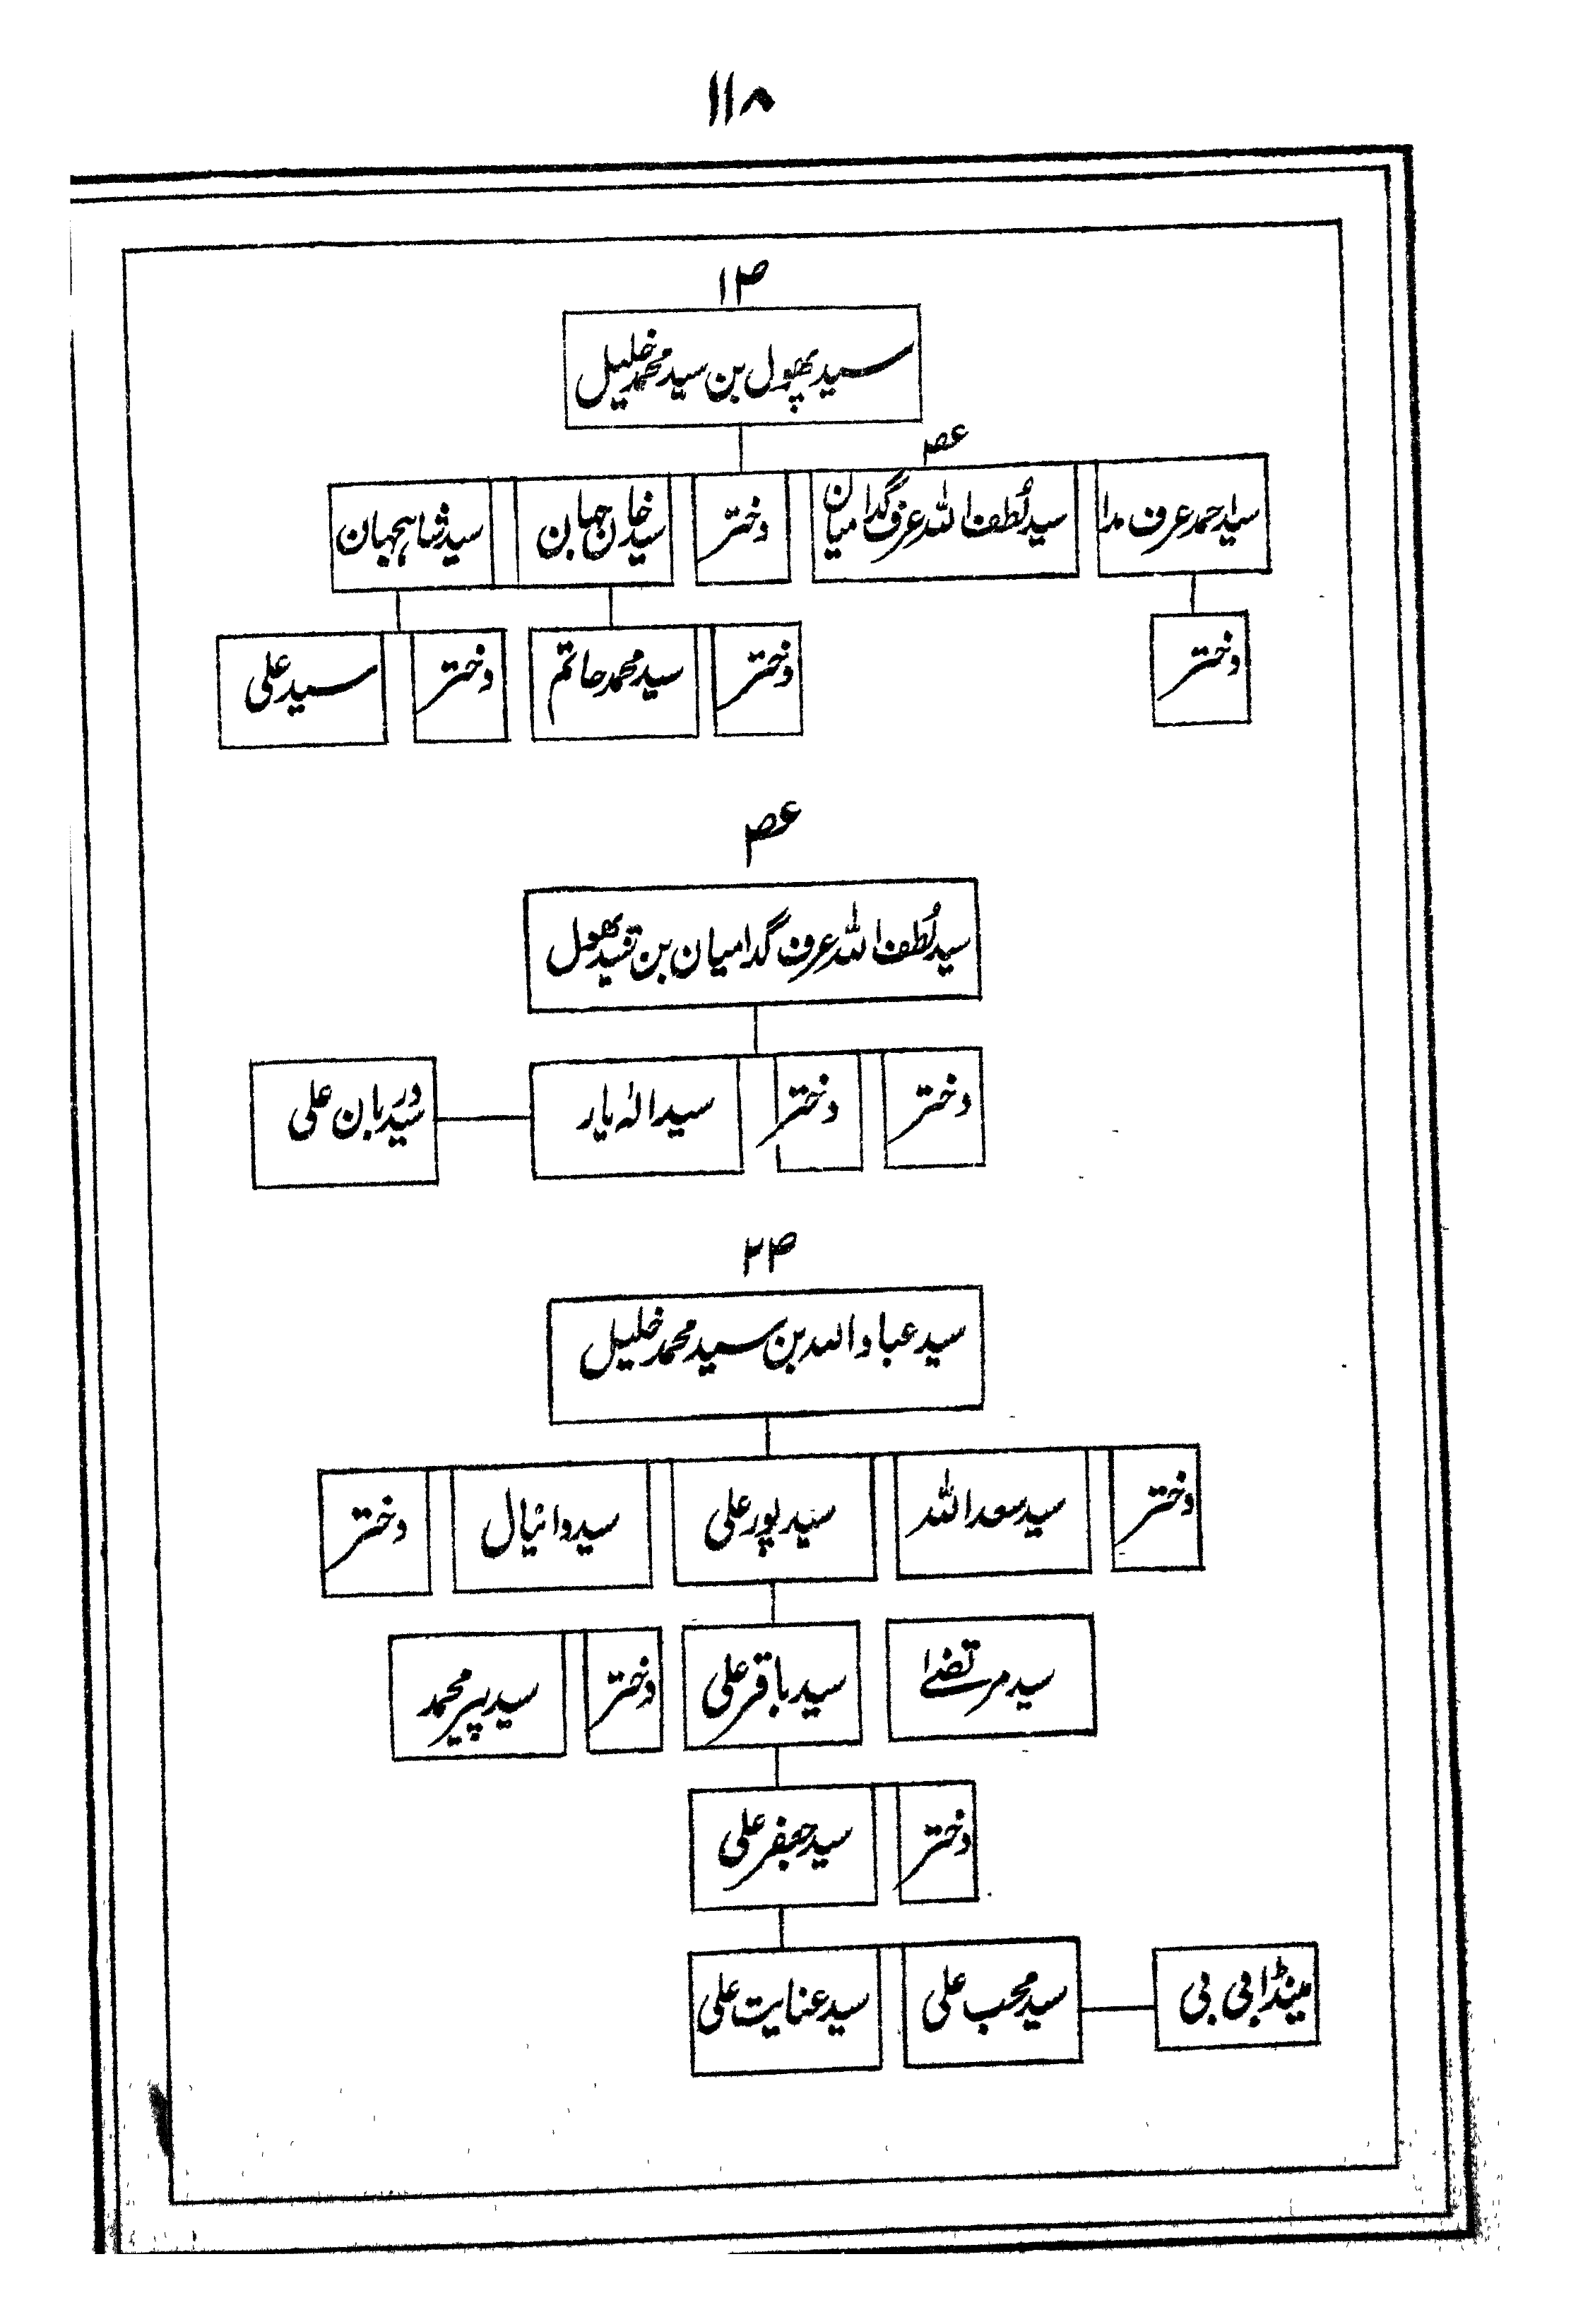 ۱۱۸
۱۳
سید پھول بن سید محمد خلیل
ع۳
سید احمد عرف مدا
سید لطف اللہ عرف گدا میاں
دختر
سید خان جہان
سید شاہجہان
دختر
دختر
سید محمد حاتم
دختر
سید علی
ع۳
سید لُطف اللہ عرف گدا میان بن سید پھول
دختر
دختر
سید الہ یار
سید دربان علی
۲۳
سید عباد اللہ بن سید محمد خلیل
دختر
سید سعد اللہ
سید پور علی
سید دانیال
دختر
سید مرتضےٰ
سید باقر علی
دختر
سید پیر محمد
دختر
سید جعفر علی
مینڈا بی بی
سید محب علی
سید عنایت علی